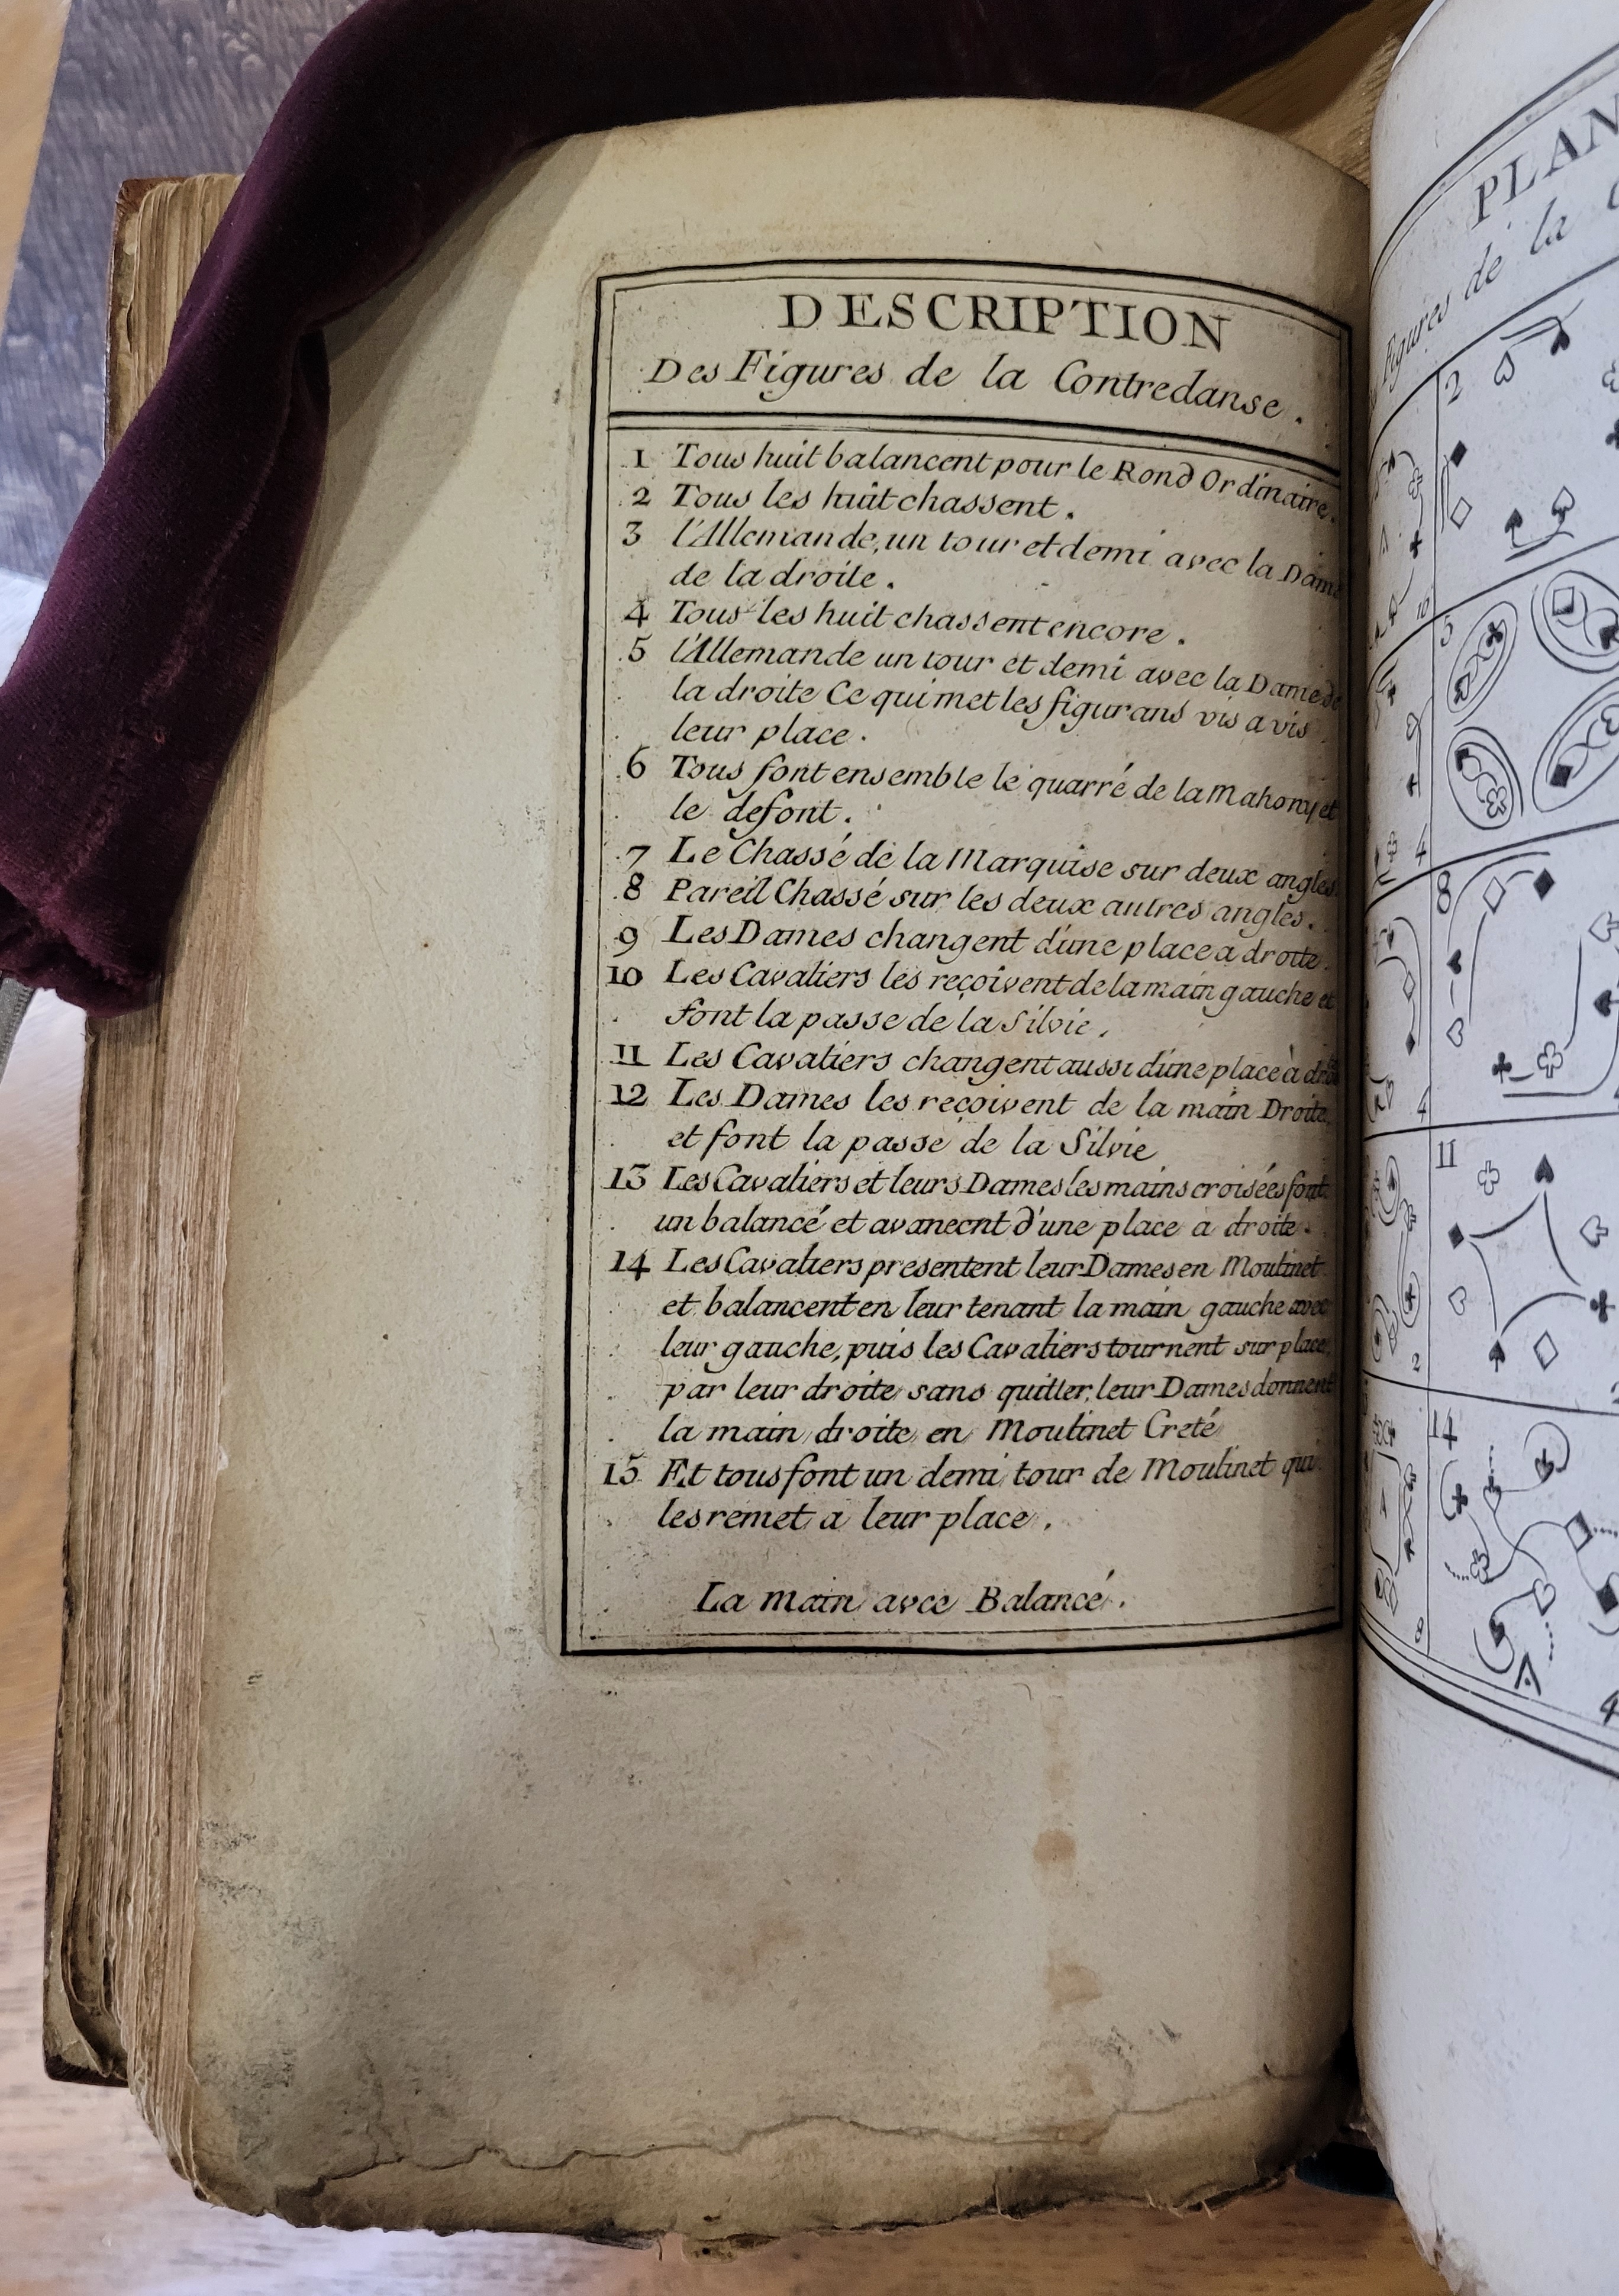 DESCRIPTION
Des Figures de la Contredanse.
1 Tous huit balancent pour le Rond Ordinaire.
2 Tous les huit chassent.
3 l'Allemande, un tour et demi avec la Dame
de la droite.
4 Tous les huit chassent encore.
5 l'Allemande un tour et demi avec la Dame de
la droite Ce qui met les figurans vis a vis
leur place.
6 Tous font ensemble le quarré de la Mahony et
le defont.
7 Le Chassé de la Marquise sur deux angles.
8 Pareil Chassé sur les deux autres angles.
9 Les Dames changent d'une place a droite.
10 Les Cavaliers les reçoivent de la main gauche et
font la passe de la Silvie.
11 Les Cavaliers changent aussi d'une place à
12 Les Dames les reçoivent de la main Droite,
et font la passe de la Silvie
13 Les Cavaliers et leurs Dames les mains croisées font
un balancé et avancent d'une place à droite.
14 Les Cavaliers presentent leur Dames en Moulinet
et balancent en leur tenant la main gauche avec
leur gauche, puis les Cavaliers tournent sur place,
par leur droite sans quitter, leur Dames donnent
la main droite en Moulinet Creté
15 Et tous font un demi tour de Moulinet qui
les remet a leur place.
La main avec Balancé.
PLAN
figures de la C
2
10
5
4
8
4
11
2
14
8
4